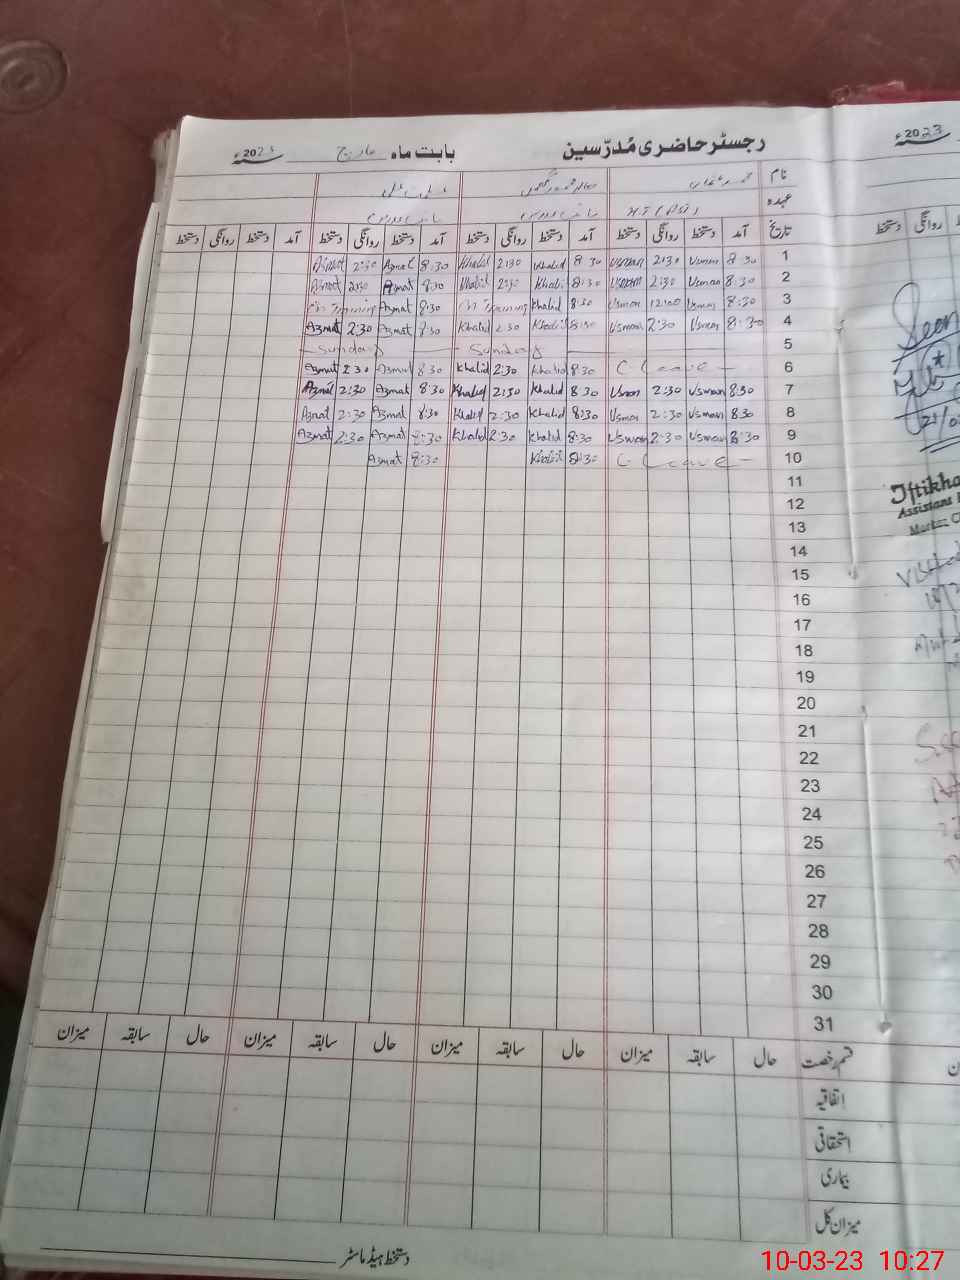 رجسٹر حاضری مُدرّسین بابت ماہ مارچ 2023ء
نام
عہدہ H.T (PST)
تاریخ آمد دستخط روانگی دستخط آمد دستخط روانگی دستخط آمد دستخط روانگی دستخط آمد دستخط روانگی دستخط
1 8:30 Usman 2:30 Usman 8:30 Khalid 2:30 Khalid 8:30 Azmat 2:30 Azmat
2 8:30 Usman 2:30 Usman 8:30 Khalid 2:30 Khalid 8:30 Azmat 2:30 Azmat
3 8:30 Usman 12:00 Usman 8:30 Khalid On Training 8:30 Azmat On Training
4 8:30 Usman 2:30 Usman 8:30 Khalid 2:30 Khalid 8:30 Azmat 2:30 Azmat
5 Sunday Sunday
6 C Leave 8:30 Khalid 2:30 Khalid 8:30 Azmat 2:30 Azmat
7 8:30 Usman 2:30 Usman 8:30 Khalid 2:30 Khalid 8:30 Azmat 2:30 Azmat
8 8:30 Usman 2:30 Usman 8:30 Khalid 2:30 Khalid 8:30 Azmat 2:30 Azmat
9 8:30 Usman 2:30 Usman 8:30 Khalid 2:30 Khalid 8:30 Azmat 2:30 Azmat
10 C Leave 8:30 Khalid 8:30 Azmat
11
12
13
14
15
16
17
18
19
20
21
22
23
24
25
26
27
28
29
30
31
قسم رخصت حال سابقہ میزان حال سابقہ میزان حال سابقہ میزان حال سابقہ میزان
اتفاقیہ
استحقاقی
بیماری
میزان کل
دستخط ہیڈ ماسٹر
2023ء
دستخط روانگی
Seen
Iftikha
Assistant
10-03-23 10:27